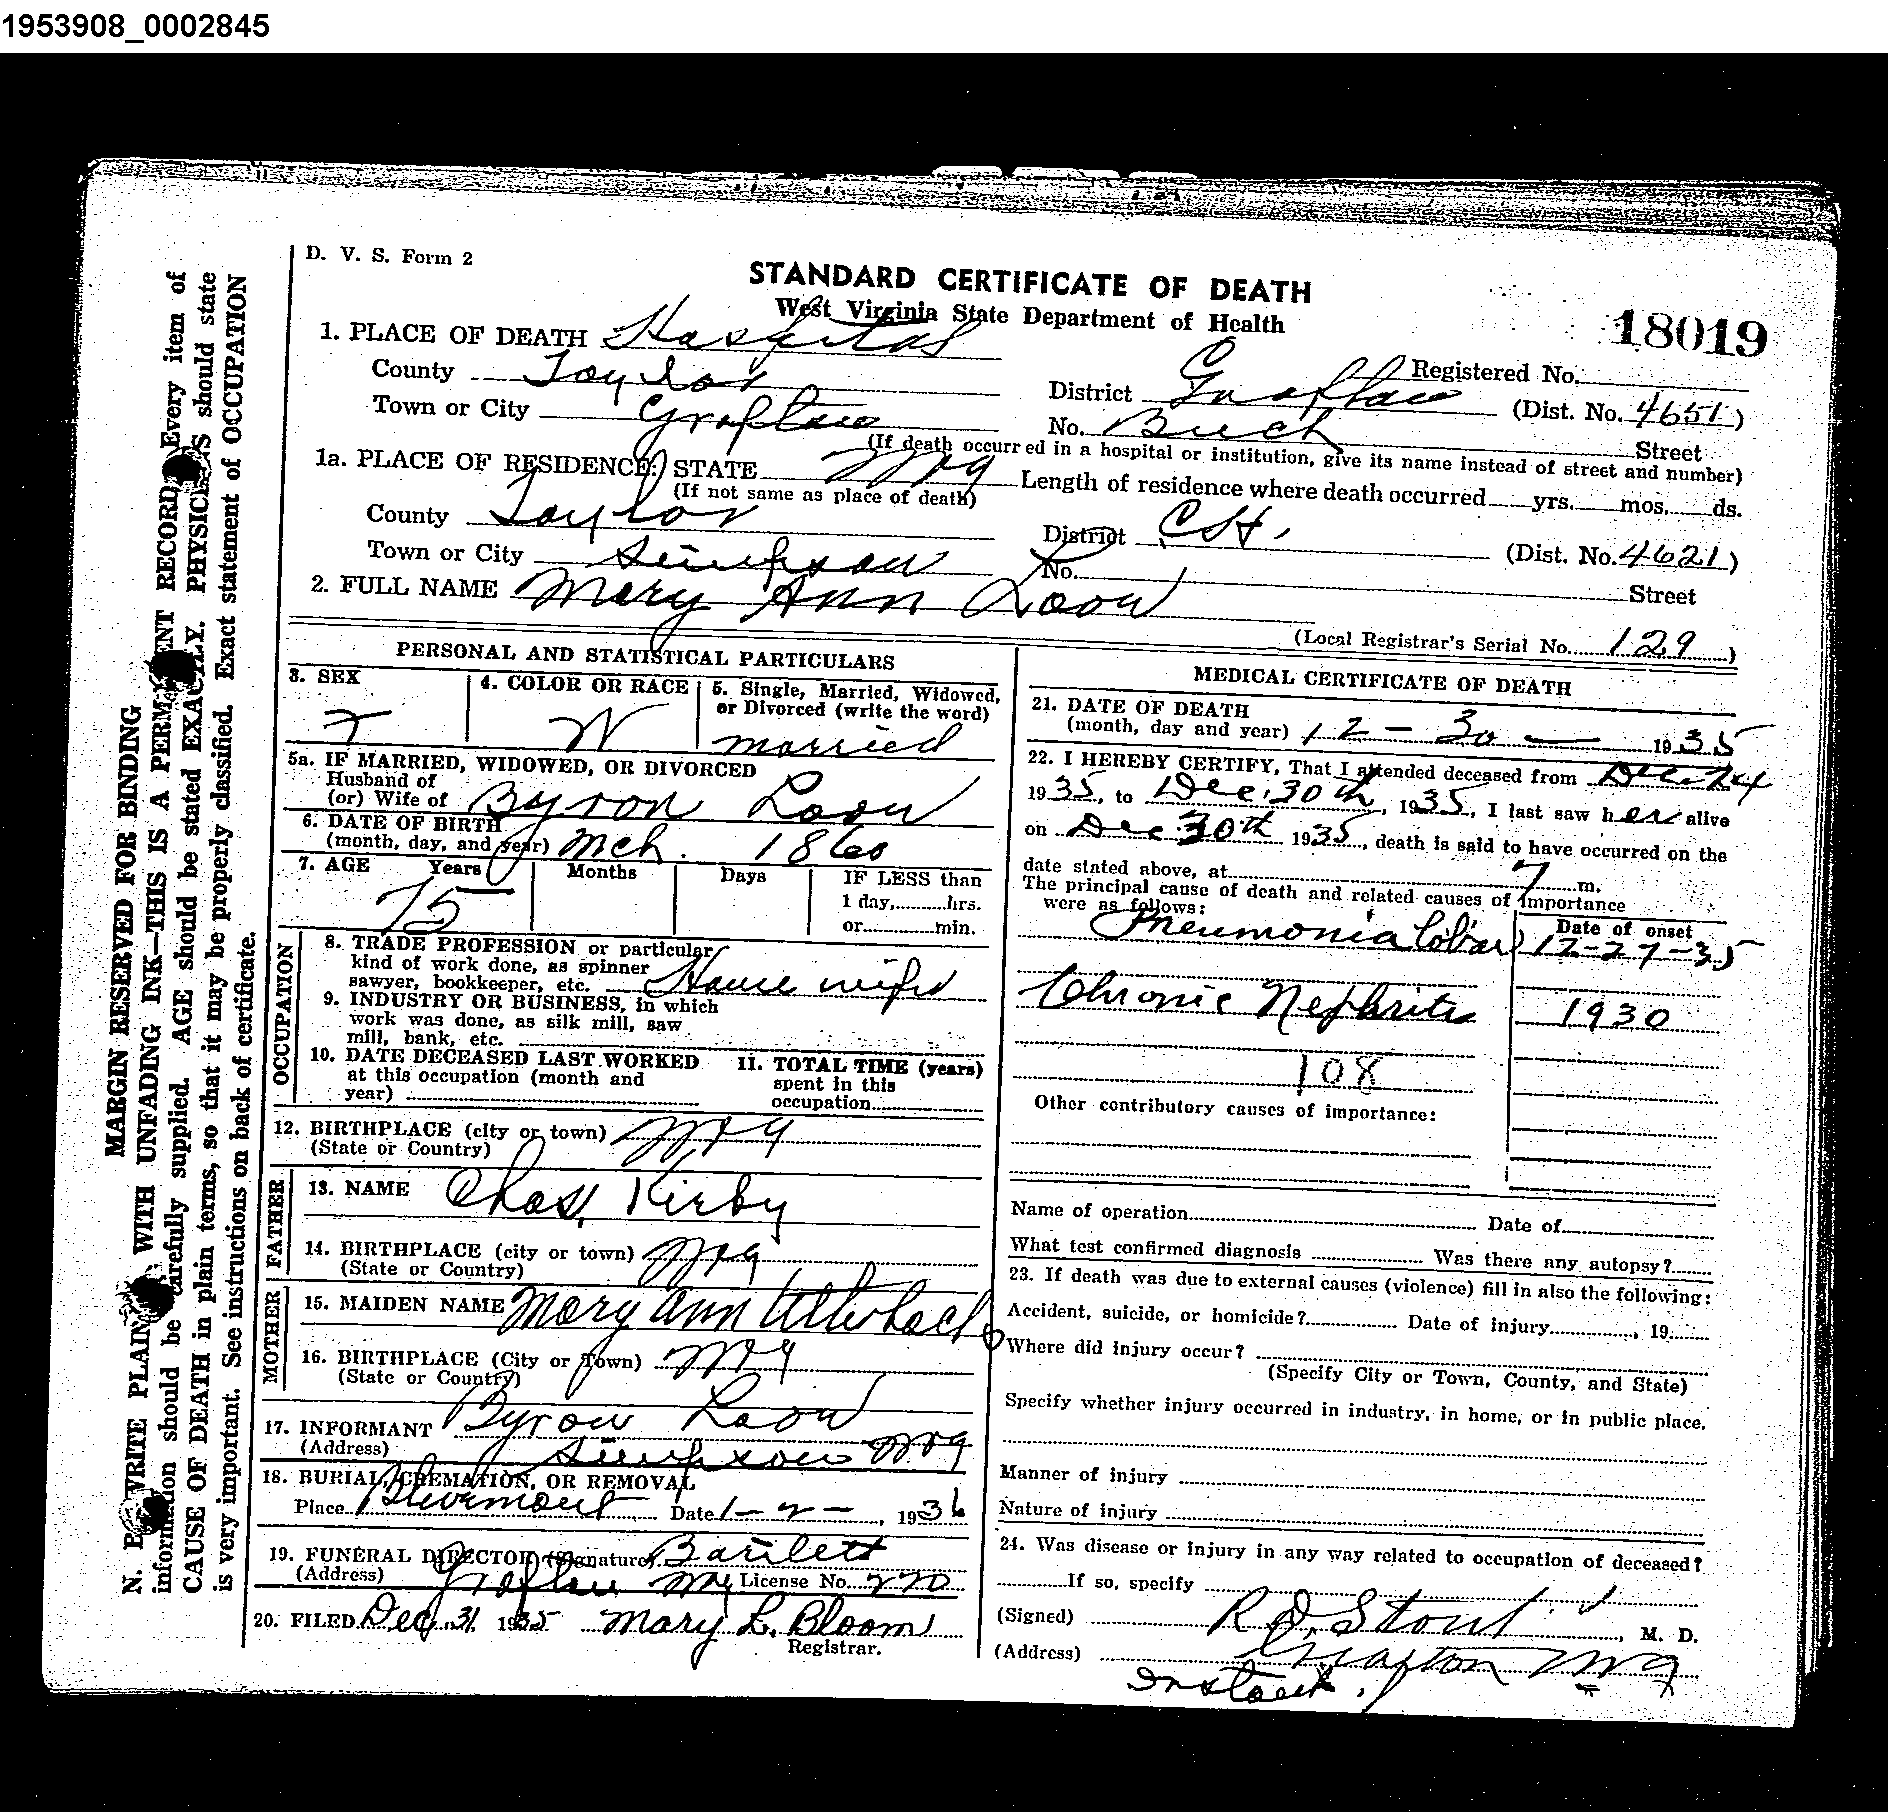 1953908_0002845
D. V. S. Form 2
STANDARD CERTIFICATE OF DEATH
West Virginia State Department of Health
18019
1. PLACE OF DEATH Hospital
Registered No.
County Taylor
District Grafton (Dist. No. 4651)
Town or City Grafton
No. Street
(If death occurred in a hospital or institution, give its name instead of street and number)
1a. PLACE OF RESIDENCE: STATE
(If not same as place of death)
Length of residence where death occurred yrs. mos. ds.
County Taylor
District C H. (Dist. No. 4621)
Town or City Simpson
No. Street
2. FULL NAME Mary Ann
(Local Registrar's Serial No. 129)
PERSONAL AND STATISTICAL PARTICULARS
3. SEX
F
4. COLOR OR RACE
W
5. Single, Married, Widowed,
or Divorced (write the word)
married
5a. IF MARRIED, WIDOWED, OR DIVORCED
Husband of
(or) Wife of Byron
6. DATE OF BIRTH
(month, day, and year) Mch. 1860
7. AGE Years Months Days IF LESS than
75
1 day, hrs.
or min.
OCCUPATION
8. TRADE PROFESSION or particular
kind of work done, as spinner
sawyer, bookkeeper, etc. House wife
9. INDUSTRY OR BUSINESS, in which
work was done, as silk mill, saw
mill, bank, etc.
10. DATE DECEASED LAST WORKED
at this occupation (month and
year)
11. TOTAL TIME (years)
spent in this
occupation
12. BIRTHPLACE (city or town)
(State or Country)
FATHER
13. NAME Chas. Kirby
14. BIRTHPLACE (city or town)
(State or Country)
MOTHER
15. MAIDEN NAME Mary Ann
16. BIRTHPLACE (City or Town)
(State or Country)
17. INFORMANT Byron
(Address) Simpson
18. BURIAL, CREMATION, OR REMOVAL
Place Date 1-2-, 1936
19. FUNERAL DIRECTOR (Signature) Bartlett
(Address) Grafton License No. 220
20. FILED Dec. 31 1935 Mary L. Bloom
Registrar.
MEDICAL CERTIFICATE OF DEATH
21. DATE OF DEATH
(month, day and year) 12 - 30 - 1935
22. I HEREBY CERTIFY, That I attended deceased from Dec. 24
1935, to Dec. 30th, 1935, I last saw her alive
on Dec 30th 1935, death is said to have occurred on the
date stated above, at 7 m.
The principal cause of death and related causes of importance
were as follows:
Date of onset
Pneumonia lobar 12-27-35
Chronic Nephritis 1930
108
Other contributory causes of importance:
Name of operation Date of
What test confirmed diagnosis Was there any autopsy?
23. If death was due to external causes (violence) fill in also the following:
Accident, suicide, or homicide? Date of injury , 19
Where did injury occur?
(Specify City or Town, County, and State)
Specify whether injury occurred in industry, in home, or in public place.
Manner of injury
Nature of injury
24. Was disease or injury in any way related to occupation of deceased?
If so, specify
(Signed) R. D. Stout, M. D.
(Address) Grafton
MARGIN RESERVED FOR BINDING
N. B. WRITE PLAINLY WITH UNFADING INK—THIS IS A PERMANENT RECORD. Every item of
information should be carefully supplied. AGE should be stated EXACTLY. PHYSICIANS should state
CAUSE OF DEATH in plain terms, so that it may be properly classified. Exact statement of OCCUPATION
is very important. See instructions on back of certificate.